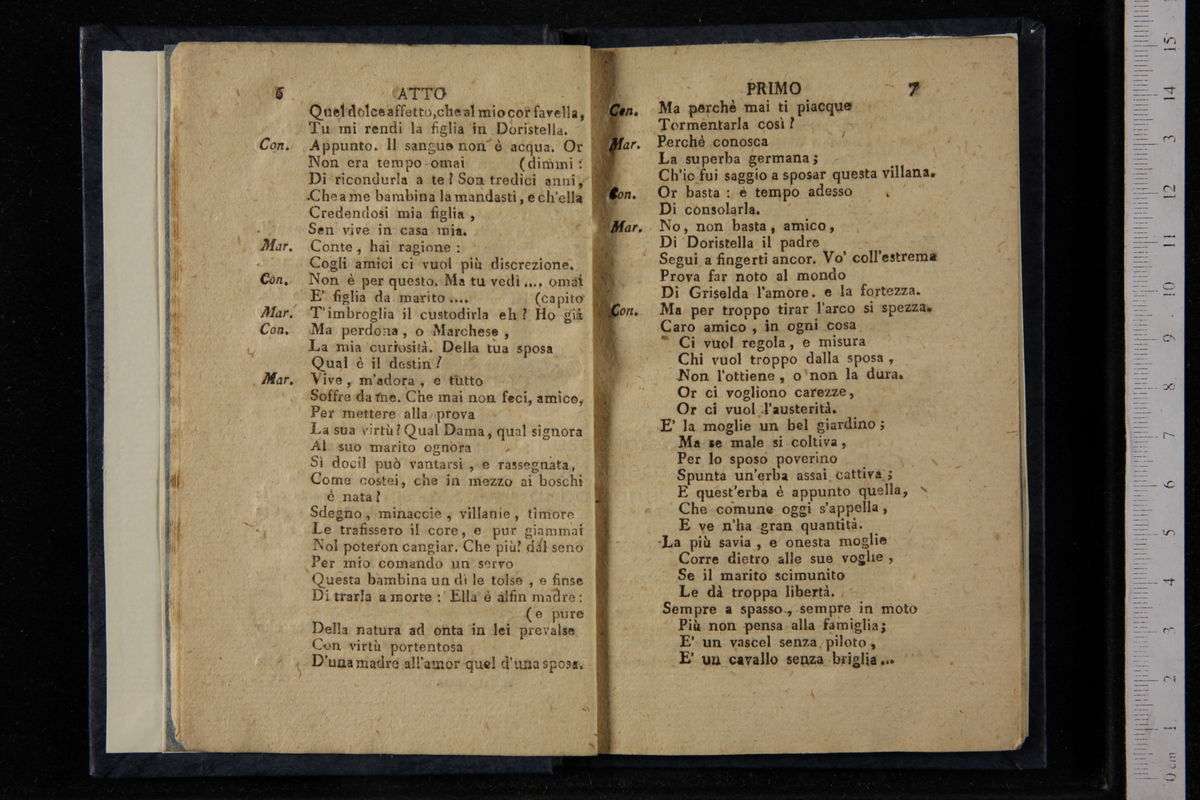 6 ATTO
Quel dolce affetto, che al mio cor favella,
Tu mi rendi la figlia in Doristella.
Con. Appunto. Il sangue non è acqua. Or
Non era tempo omai (dimmi:
Di ricondurla a te? Son tredici anni,
Che a me bambina la mandasti, e ch'ella
Credendosi mia figlia,
Sen vive in casa mia.
Mar. Conte, hai ragione:
Cogli amici ci vuol più discrezione.
Con. Non è per questo. Ma tu vedi.... omai
E' figlia da marito.... (capito
Mar. T'imbroglia il custodirla eh? Ho già
Con. Ma perdona, o Marchese,
La mia curiosità. Della tua sposa
Qual è il destin?
Mar. Vive, m'adora, e tutto
Soffre da me. Che mai non feci, amico,
Per mettere alla prova
La sua virtù? Qual Dama, qual signora
Al suo marito ognora
Sì docil può vantarsi, e rassegnata,
Come costei, che in mezzo ai boschi
è nata?
Sdegno, minaccie, villanie, timore
Le trafissero il core, e pur giammai
Nol poteron cangiar. Che più? dal seno
Per mio comando un servo
Questa bambina un dì le tolse, e finse
Di trarla a morte: Ella è alfin madre:
(e pure
Della natura ad onta in lei prevalse
Con virtù portentosa
D'una madre all'amor quel d'una sposa.
PRIMO 7
Con. Ma perchè mai ti piacque
Tormentarla così?
Mar. Perchè conosca
La superba germana;
Ch'io fui saggio a sposar questa villana.
Con. Or basta: e tempo adesso
Di consolarla.
Mar. No, non basta, amico,
Di Doristella il padre
Segui a fingerti ancor. Vo' coll'estrema
Prova far noto al mondo
Di Griselda l'amore. e la fortezza.
Con. Ma per troppo tirar l'arco si spezza.
Caro amico, in ogni cosa
Ci vuol regola, e misura
Chi vuol troppo dalla sposa,
Non l'ottiene, o non la dura.
Or ci vogliono carezze,
Or ci vuol l'austerità.
E' la moglie un bel giardino;
Ma se male si coltiva,
Per lo sposo poverino
Spunta un'erba assai cattiva;
E quest'erba è appunto quella,
Che comune oggi s'appella,
E ve n'ha gran quantità.
La più savia, e onesta moglie
Corre dietro alle sue voglie,
Se il marito scimunito
Le dà troppa libertà.
Sempre a spasso, sempre in moto
Più non pensa alla famiglia;
E' un vascel senza piloto,
E' un cavallo senza briglia...
0 cm 1 2 3 4 5 6 7 8 9 10 11 12 13 14 15